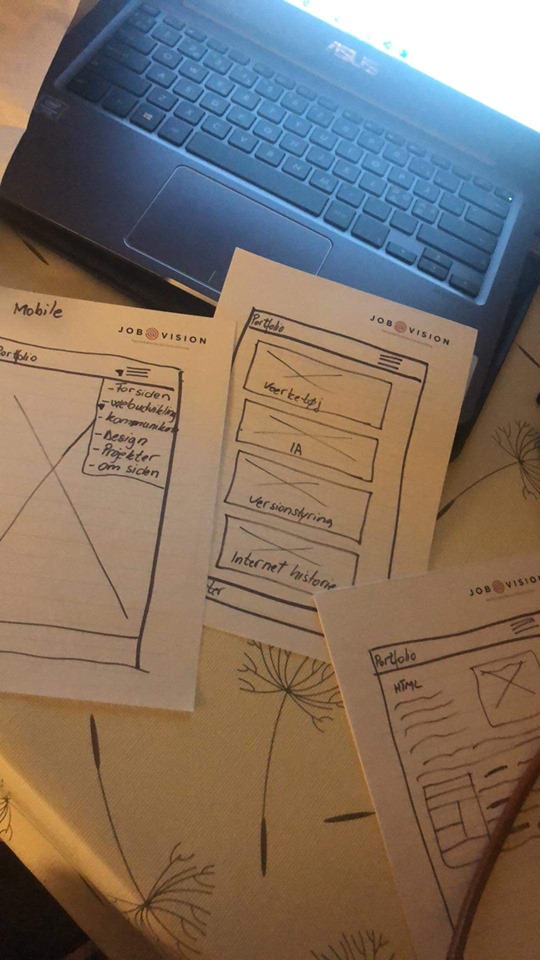 ASUS
Mobile
JOB VISION
Portfolio
- Forsiden
- webudvikling
- kommunikation
- Design
- Projekter
- om siden
JOB VISION
Portfolio
værketøj
IA
versionstyring
Internet historie
ter
JOB VISION
Portfolio
HTML